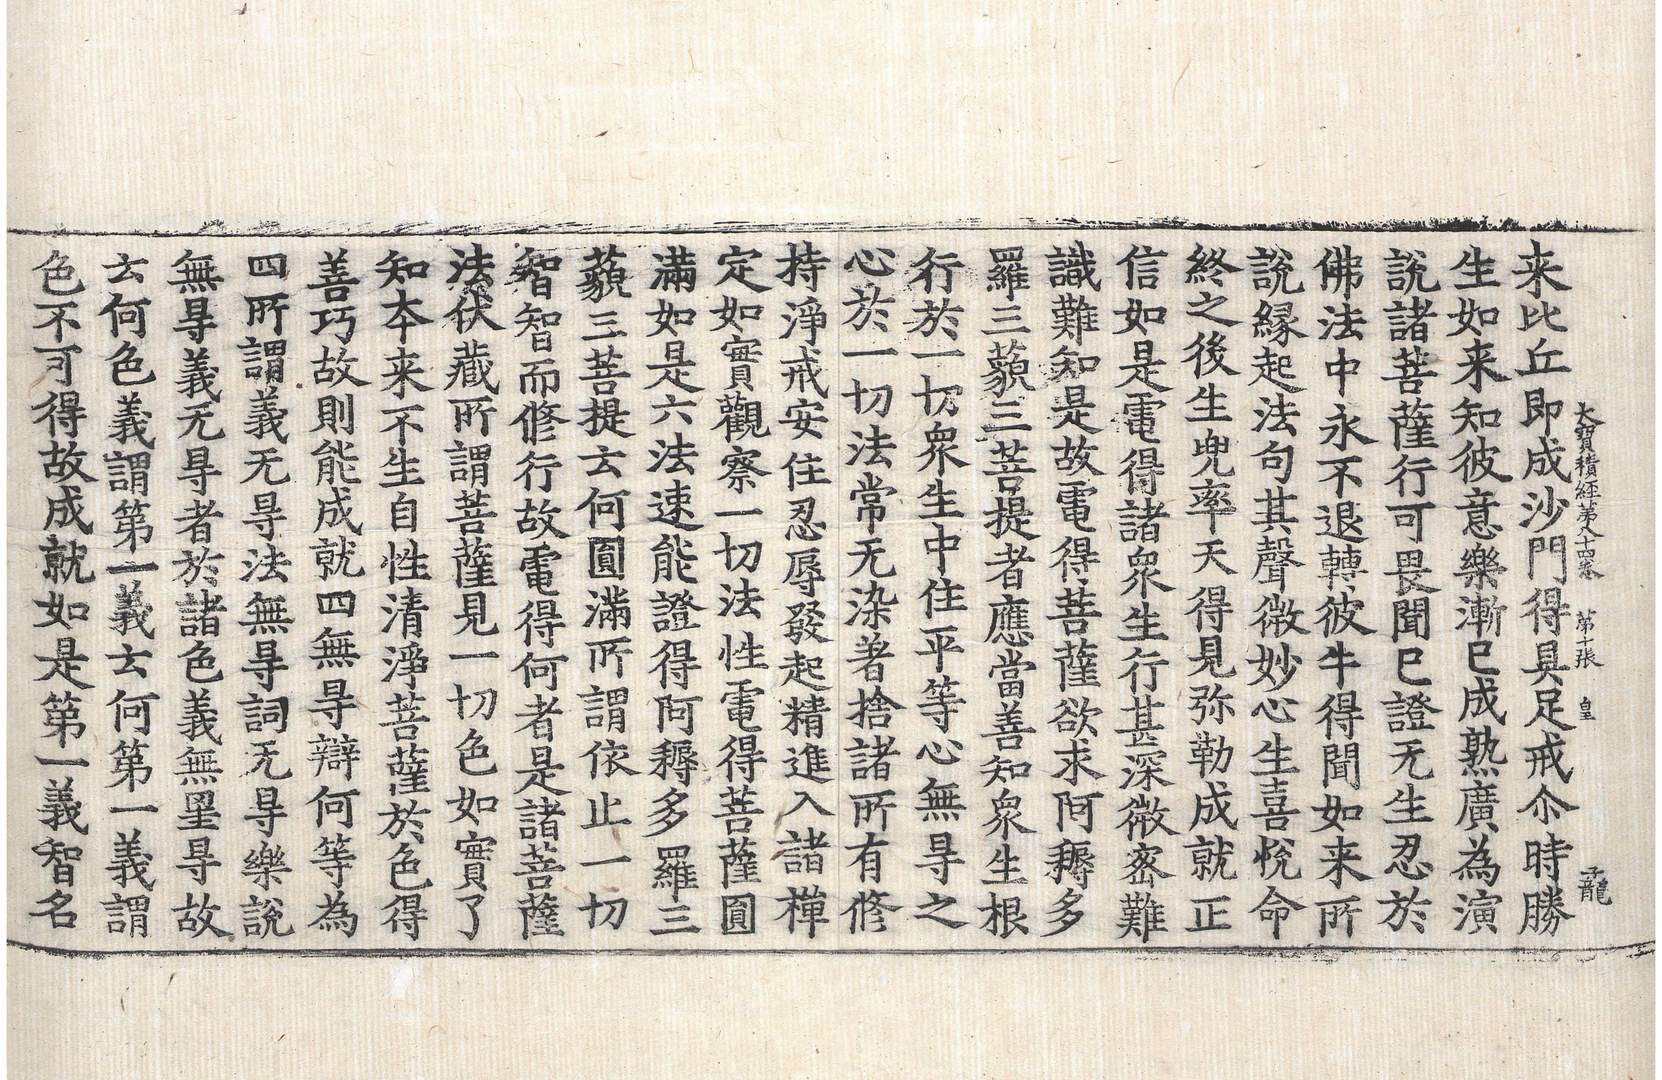 大寶積經第八十四卷 第十張 皇
来比丘即成沙門得具足戒尒時勝
生如来知彼意樂漸已成熟廣為演
說諸菩薩行可畏聞已證无生忍於
佛法中永不退轉彼牛得聞如来所
說緣起法句其聲微妙心生喜悅命
終之後生兜率天得見弥勒成就正
信如是電得諸衆生行甚深微密難
識難知是故電得菩薩欲求阿耨多
羅三藐三菩提者應當善知衆生根
行於一切衆生中住平等心無㝵之
心於一切法常无染著捨諸所有修
持淨戒安住忍辱發起精進入諸禪
定如實觀察一切法性電得菩薩圓
滿如是六法速能證得阿耨多羅三
藐三菩提云何圓滿所謂依止一切
智智而修行故電得何者是諸菩薩
法伏藏所謂菩薩見一切色如實了
知本来不生自性清淨菩薩於色得
善巧故則能成就四無㝵辯何等為
四所謂義无㝵法無㝵詞无㝵樂說
無㝵義无㝵者於諸色義無罣㝵故
云何色義謂第一義云何第一義謂
色不可得故成就如是第一義智名